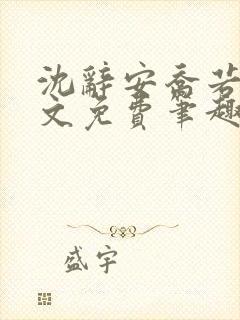 沈辞安乔若
文免费笔趣
盛宇